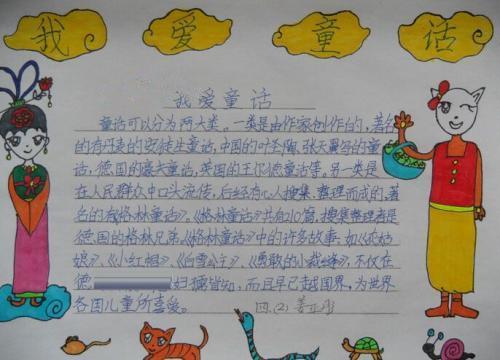 我爱童话
我爱童话
童话可以分为两大类。一类是由作家创作的,著名
的有丹麦的安徒生童话,中国的叶圣陶、张天翼写的童
话,德国的豪夫童话,英国的王尔德童话等,另一类是
在人民群众中口头流传,后经有心人搜集整理而成的,著
名的有《格林童话》。《格林童话》共有210篇,搜集整理者是
德国的格林兄弟《格林童话》中的许多故事,如《灰姑
娘》、《小红帽》、《白雪公主》、《勇敢的小裁缝》,不仅在
德 妇孺皆知,而且早已越国界,为世界
各国儿童所喜爱。 四.(2)